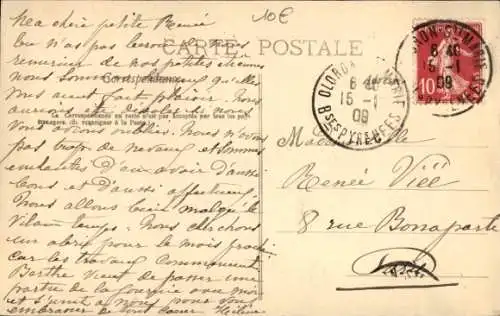 10€
CARTE POSTALE
Correspondance
La Correspondance au recto n'est pas acceptée par tous les pays
étrangers. (Se renseigner à la Poste)
Ma chère petite Renée
tu n'as pas besoin de nous
remercier de nos petites étrennes
nous sommes qu'elles
vous aient fait plaisir. Nous
aurions été désolés si nous
vous avions oubliés. Nous n'avons
pas trop de neveux et sommes
enchantés d'en avoir d'aussi
bons et d'aussi affectueux.
Nous allons bien malgré le
vilain temps. Nous cherchons
un abri pour le mois prochain
car les travaux commencent
Berthe vient de passer une
partie de la journée avec moi
et s'unit à nous pour vous
embrasser de tout cœur Hélène
OLORON Ste MARIE
6 40
15 - 1
09
Bses PYRENEES
10
Mademoiselle
Renée Viel
8 rue Bonaparte
Paris